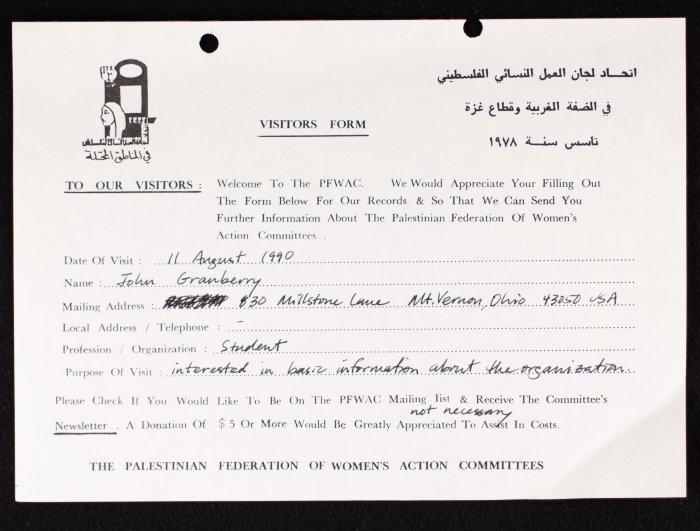 اتحـــاد لجان العمل النسائي الفلسطيني
في الضفة الغربية وقطاع غزة
تاسس سنــة ١٩٧٨
في المناطق المحتلة
VISITORS FORM
TO OUR VISITORS : Welcome To The PFWAC. We Would Appreciate Your Filling Out
The Form Below For Our Records & So That We Can Send You
Further Information About The Palestinian Federation Of Women's
Action Committees .
Date Of Visit : 11 August 1990
Name : John Granberry
Mailing Address : 830 Millstone Lane Mt. Vernon, Ohio 43050 USA
Local Address / Telephone : -
Profession / Organization : Student
Purpose Of Visit : interested in basic information about the organization.
Please Check If You Would Like To Be On The PFWAC Mailing list & Receive The Committee's
not necessary
Newsletter . A Donation Of $ 5 Or More Would Be Greatly Appreciated To Assist In Costs.
THE PALESTINIAN FEDERATION OF WOMEN'S ACTION COMMITTEES